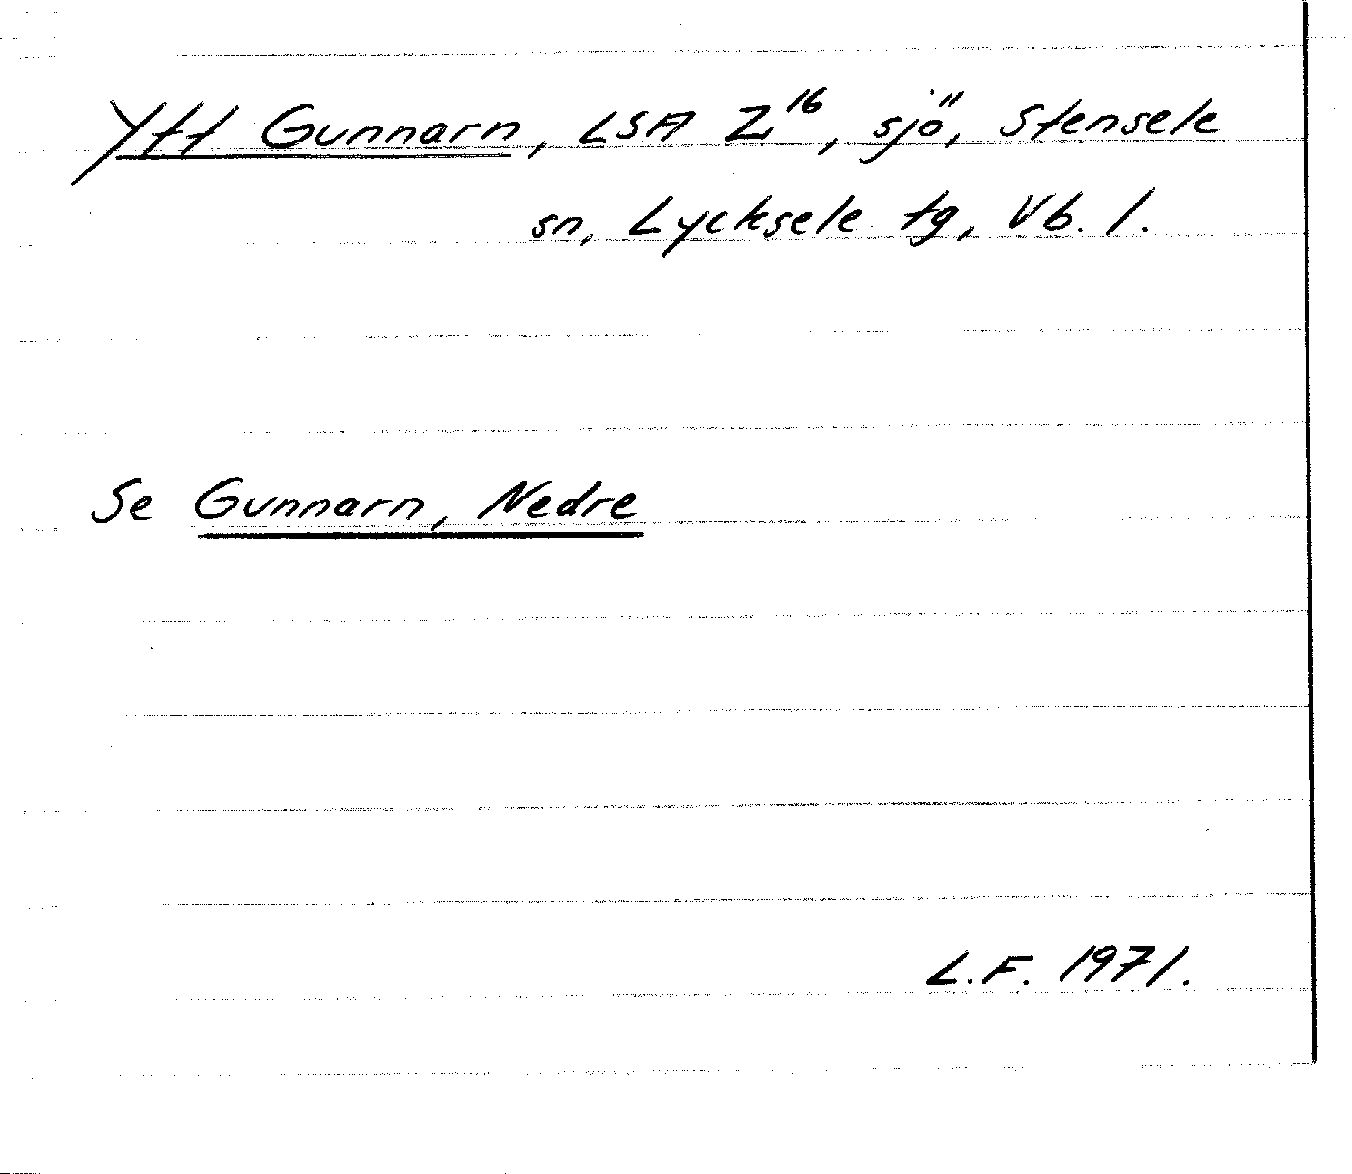 Ytt Gunnarn, LSA Z16, sjö, Stensele
sn, Lycksele tg, Vb. l.
Se Gunnarn, Nedre
L.F. 1971.